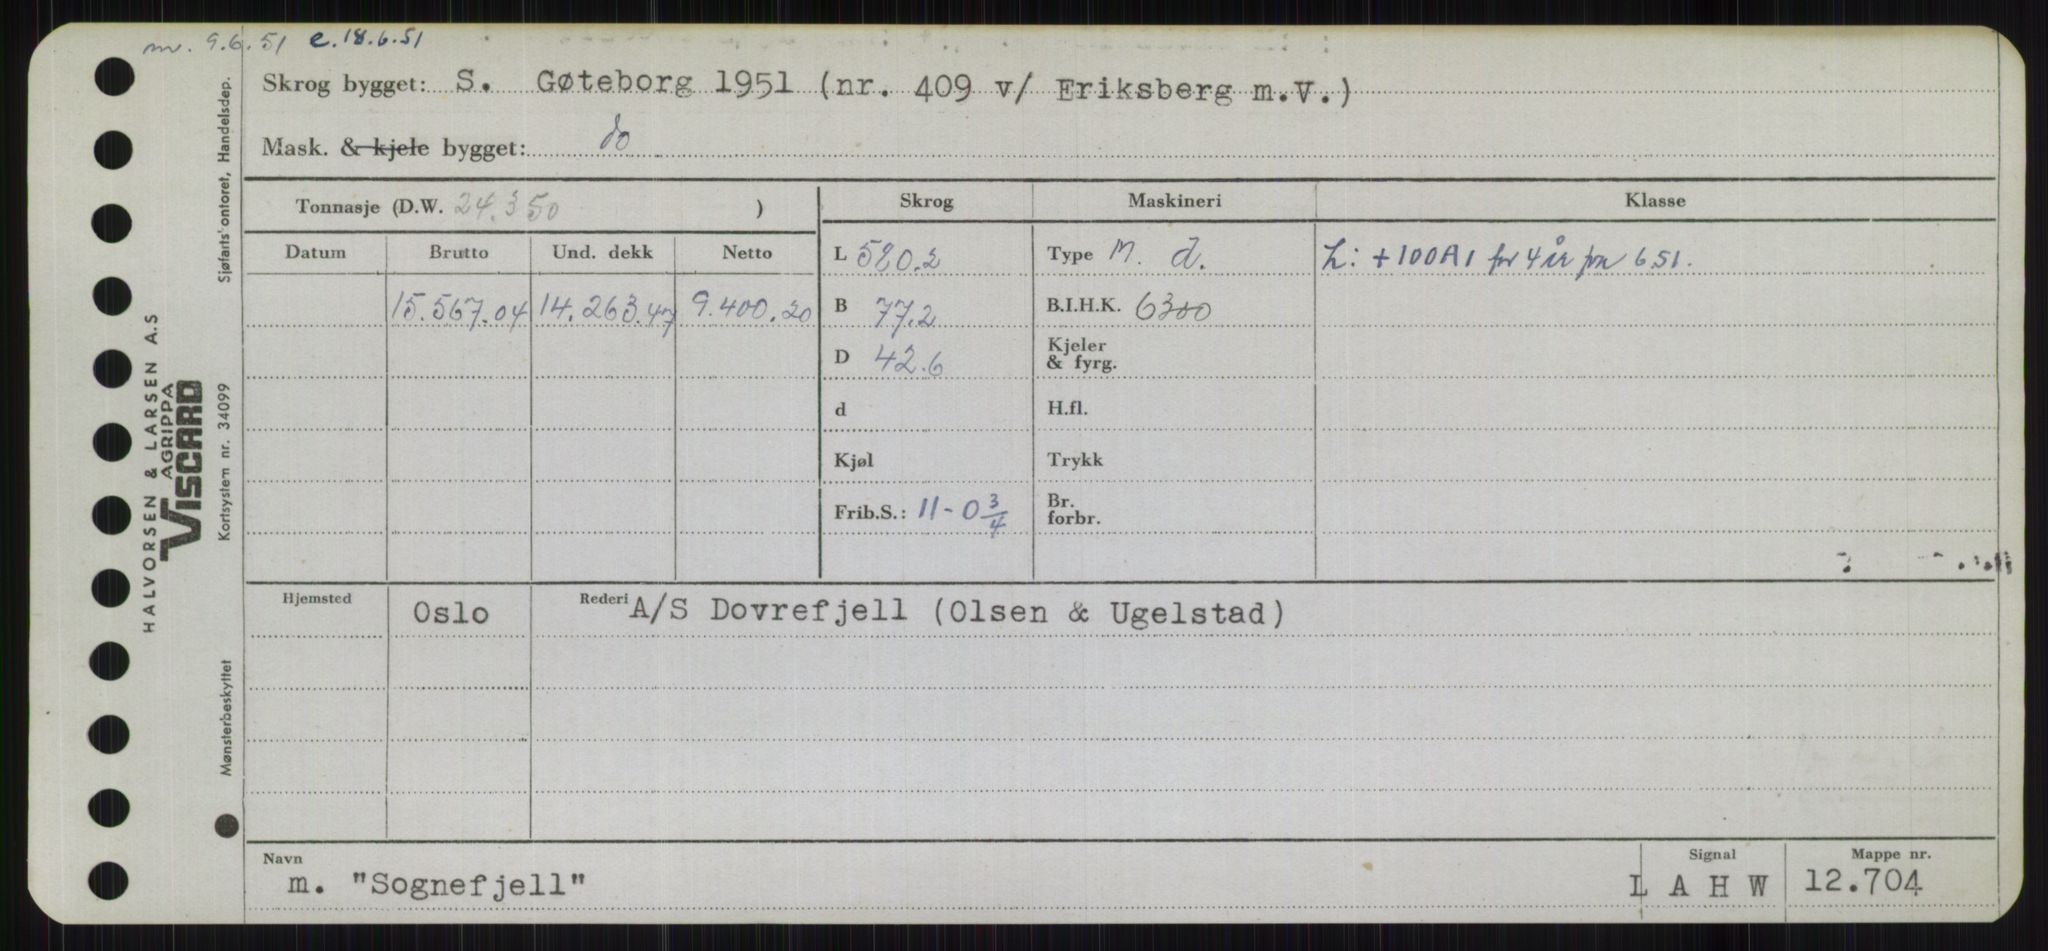 m. 9.6.51 e. 18.6.51
Skrog bygget: S. Gøteborg 1951 (nr. 409 v/ Eriksberg m.V.)
Mask. & kjele bygget: do
Tonnasje (D.W. 24.350 )
Datum Brutto Und. dekk Netto
15.567.04 14.263.47 9.400.20
Skrog
L 580.2
B 77.2
D 42.6
d
Kjøl
Frib.S.: 11-0 3/4
Maskineri
Type M. d.
B.I.H.K. 6300
Kjeler
& fyrg.
H.fl.
Trykk
Br.
forbr.
Klasse
L: +100A1 for 4 år fra 6 51.
Hjemsted Oslo Rederi A/S Dovrefjell (Olsen & Ugelstad)
Navn
m. "Sognefjell"
Signal
L A H W
Mappe nr.
12.704
HALVORSEN & LARSEN A.S
AGRIPPA
VISCARD
Mønsterbeskyttet Kortsystem nr. 34099 Sjøfartskontoret, Handelsdep.